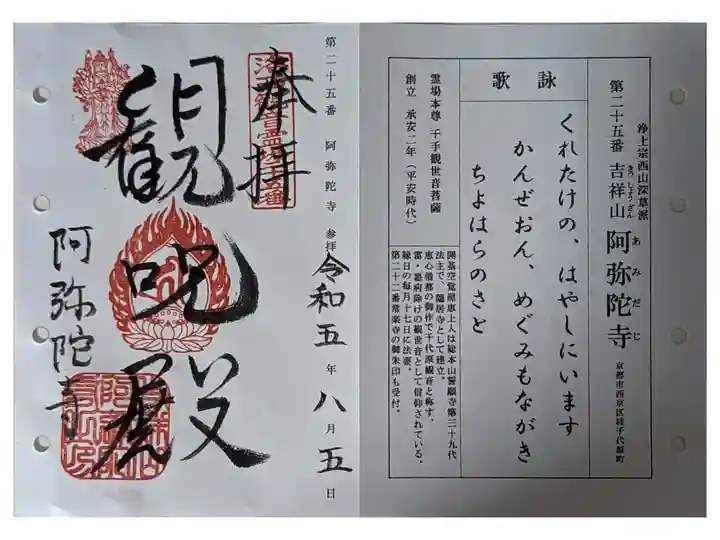 浄土宗西山深草派
第二十五番 吉祥山 阿弥陀寺
きっしょうざん
あみだじ
京都市西京区桂千代原町
詠歌
くれたけの、はやしにいます
かんぜおん、めぐみもながき
ちよはらのさと
霊場本尊 千手観世音菩薩
創立 承安二年（平安時代）
開基空覚顕恵上人は総本山誓願寺第三十九代
法主で、隠居寺として建立。
恵心僧都の御作で千代原観音と称す。
雷・悪病除けの観世音として信仰されている。
縁日の毎月十七日に法要。
第二十二番常楽寺の御朱印も受付。
第二十五番 阿弥陀寺 参拝 令和五年八月五日
奉拝
阿弥陀寺